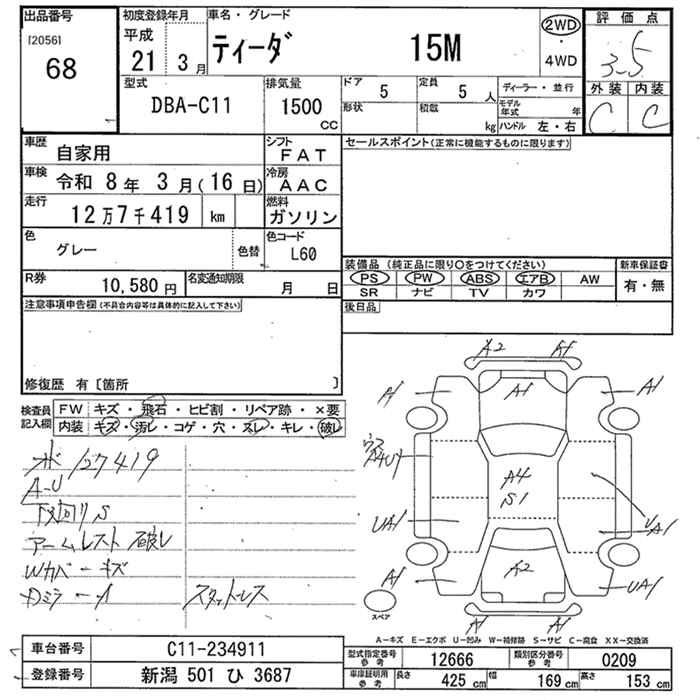 出品番号
[2056]
68
初度登録年月
平成
21 3月
車名・グレード
ティーダ 15M
2WD
・
4WD
評価点
3.5
外装 内装
C C
型式
DBA-C11
排気量
1500 CC
ドア 5
形状
定員 5 人
積載 kg
ディーラー・並行
モデル年式 年
ハンドル 左・右
車歴 自家用
シフト FAT
車検 令和 8年 3月(16日)
冷房 AAC
走行 12万7千419 km
燃料 ガソリン
色 グレー 色替
色コード L60
R券 10,580円
名変通知期限 月 日
セールスポイント(正常に機能するものに限ります)
装備品 (純正品に限り○をつけてください)
PS PW ABS エアB AW
SR ナビ TV カワ
新車保証書
有・無
後日品
注意事項申告欄(不具合内容等は具体的に記入して下さい)
修復歴 有〔箇所 〕
検査員記入欄
FW キズ・飛石・ヒビ割・リペア跡・×要
内装 キズ・汚レ・コゲ・穴・スレ・キレ・破レ
127419
A-U
下廻りS
アームレスト破レ
Wカバーキズ
Dミラー A
スタットレス
A2 A1
A1 A1 A1
A4
S1
UA1 UA1
A1 A2 UA1
A1 A1
スペア
A-キズ E-エクボ U-凹み W-補修跡 S-サビ C-腐食 XX-交換済
車台番号 C11-234911
登録番号 新潟 501 ひ 3687
型式指定番号 参考 12666
類別区分番号 参考 0209
車庫証明用 参考 長さ 425 cm 幅 169 cm 高さ 153 cm